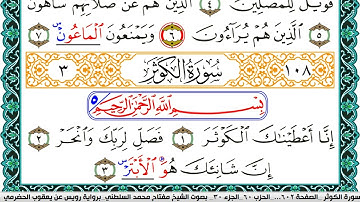 فَوَيْلٌ لِّلْمُصَلِّينَ ٤ الَّذِينَ هُمْ عَن صَلَاتِهِمْ سَاهُونَ
٥ الَّذِينَ هُمْ يُرَآءُونَ ٦ وَيَمْنَعُونَ الْمَاعُونَ ٧
١٠٨ سُورَةُ الْكَوْثَرِ ٣
بِسْمِ اللَّهِ الرَّحْمَٰنِ الرَّحِيمِ
إِنَّا أَعْطَيْنَاكَ الْكَوْثَرَ ١ فَصَلِّ لِرَبِّكَ وَانْحَرْ ٢
إِنَّ شَانِئَكَ هُوَ الْأَبْتَرُ ٣
سورة الكوثر . الصفحة ٦٠٢ ... الحزب ٦٠ . الجزء ٣٠ . بصوت الشيخ مفتاح محمد السلطني . برواية رويس عن يعقوب الحضرمي